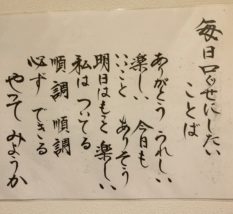 毎日口ぐせにしたい
ことば
ありがとう うれしい
楽しい 今日も
いいこと ありそう
明日はもっと 楽しい
私は ついてる
順調 順調
必ず できる
やってみようか